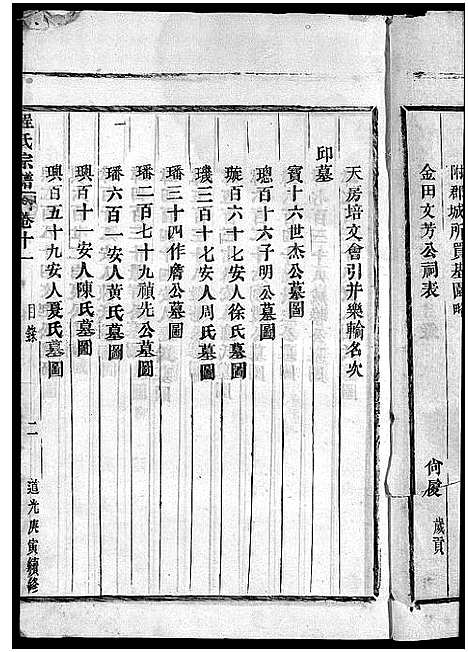 附郡城所買基圖略
金田文芳公祠表
尙𡸁 歲貢
天房培文會引并樂輸名次
邱墓
寳十六世杰公墓圖
璁百十六子明公墓圖
璇百六十七安人徐氏墓圖
璞三百十七安人周氏墓圖
璠三十四作膺公墓圖
璠二百七十九禎先公墓圖
璠六百一安人黃氏墓圖
璵百十一安人陳氏墓圖
璵百五十九安人夏氏墓圖
程氏宗譜 卷十一 目錄 二 道光庚寅續修